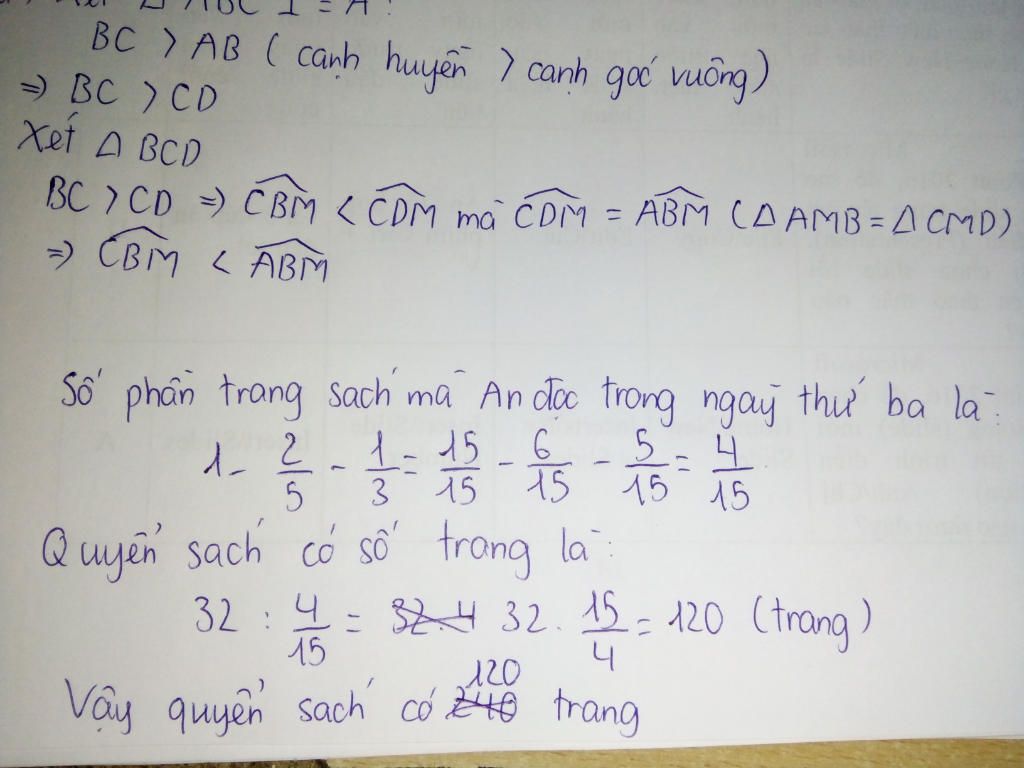 Xét Δ ABC ⊥ = A :
BC > AB ( cạnh huyền > cạnh góc vuông)
=> BC > CD
Xét Δ BCD
BC > CD => CBM < CDM mà CDM = ABM (Δ AMB = Δ CMD)
=> CBM < ABM
Số phần trang sách mà An đọc trong ngày thứ ba là:
1 - 2/5 - 1/3 = 15/15 - 6/15 - 5/15 = 4/15
Quyển sách có số trang là:
32 : 4/15 = 32 . 15/4 = 120 (trang)
Vậy quyển sách có 120 trang